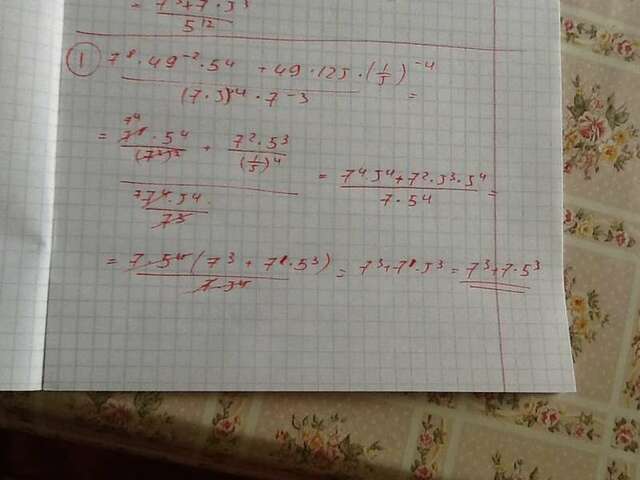 = 7³+7·5³ / 5¹²
① 7⁸·49⁻²·5⁴ + 49·125·(1/5)⁻⁴ / (7·5)⁴·7⁻³ =
= 7⁴ 7⁸·5⁴ / (7²)² + 7²·5³ / (1/5)⁴ / 7 7⁴·5⁴ / 7³ = 7⁴5⁴+7²·5³·5⁴ / 7·5⁴ =
= 7·5⁴(7³+7·5³) / 7·5⁴ = 7³+7·5³ = 7³+7·5³